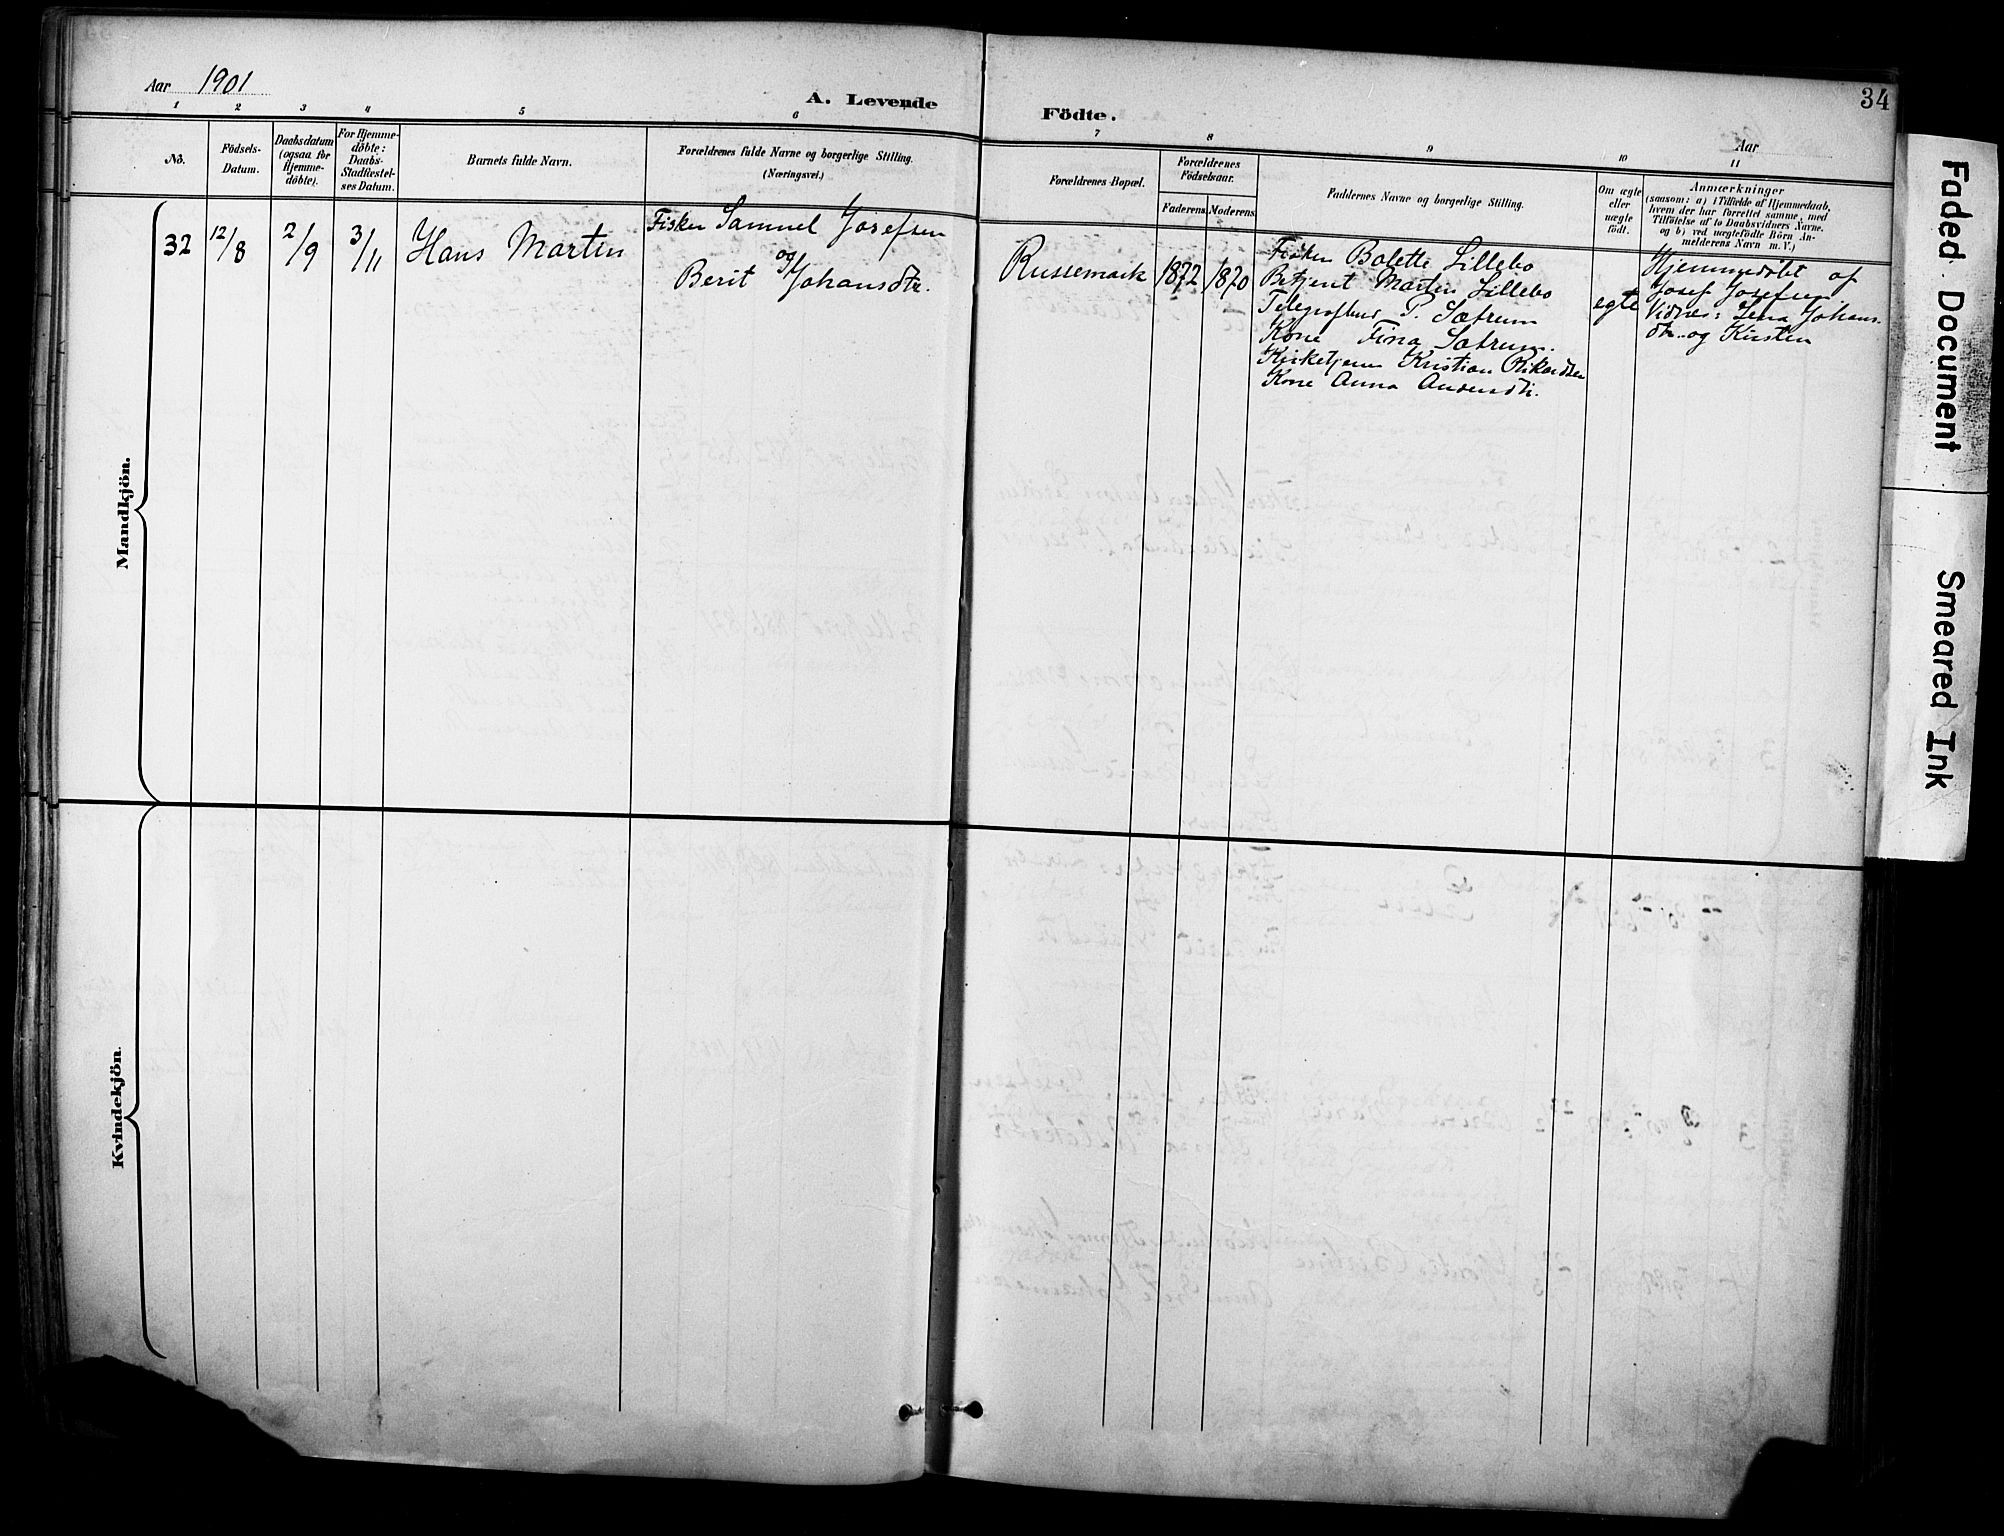 Aar 1901
A. Levende
Födte.
Aar
34
1
2
3
4
5
6
7
8
9
10
11
No.
Födsels-
Datum.
Daabsdatum
(ogsaa for
Hjemme-
döbte).
For Hjemme-
döbte:
Daabs-
Stadfestel-
ses Datum.
Barnets fulde Navn.
Forældrenes fulde Navne og borgerlige Stilling.
(Næringsvei.)
Forældrenes Bopæl.
Forældrenes
Födselsaar.
Faderens.
Moderens.
Faddernes Navne og borgerlige Stilling.
Om ægte
eller
uægte
födt.
Anmærkninger
(saasom: a) i Tilfælde af Hjemmedaab,
hvem der har forrettet samme, med
Tilföielse af to Daabsvidners Navne.
og b) ved uægtefödte Börn An-
melderens Navn m. V.)
Mandkjön.
32
12/8
2/9
3/11
Hans Martin
Fisker Samuel Josefsen
og
Berit Johansdtr.
Russemark
1872
1870
Fisker Balette Lillebo
Betjent Martin Lillebo
Telegrafbud P. Sætrum
Kone Fina Sætrum.
Kirketjener Kristian Rikardsen
Kone Anna Andersdtr.
egte
Hjemmedøbt af
Josef Josefsen.
Vidner: Lena Johans-
dtr. og Kirsten
Kvindekjön.
Faded Document
Smeared Ink